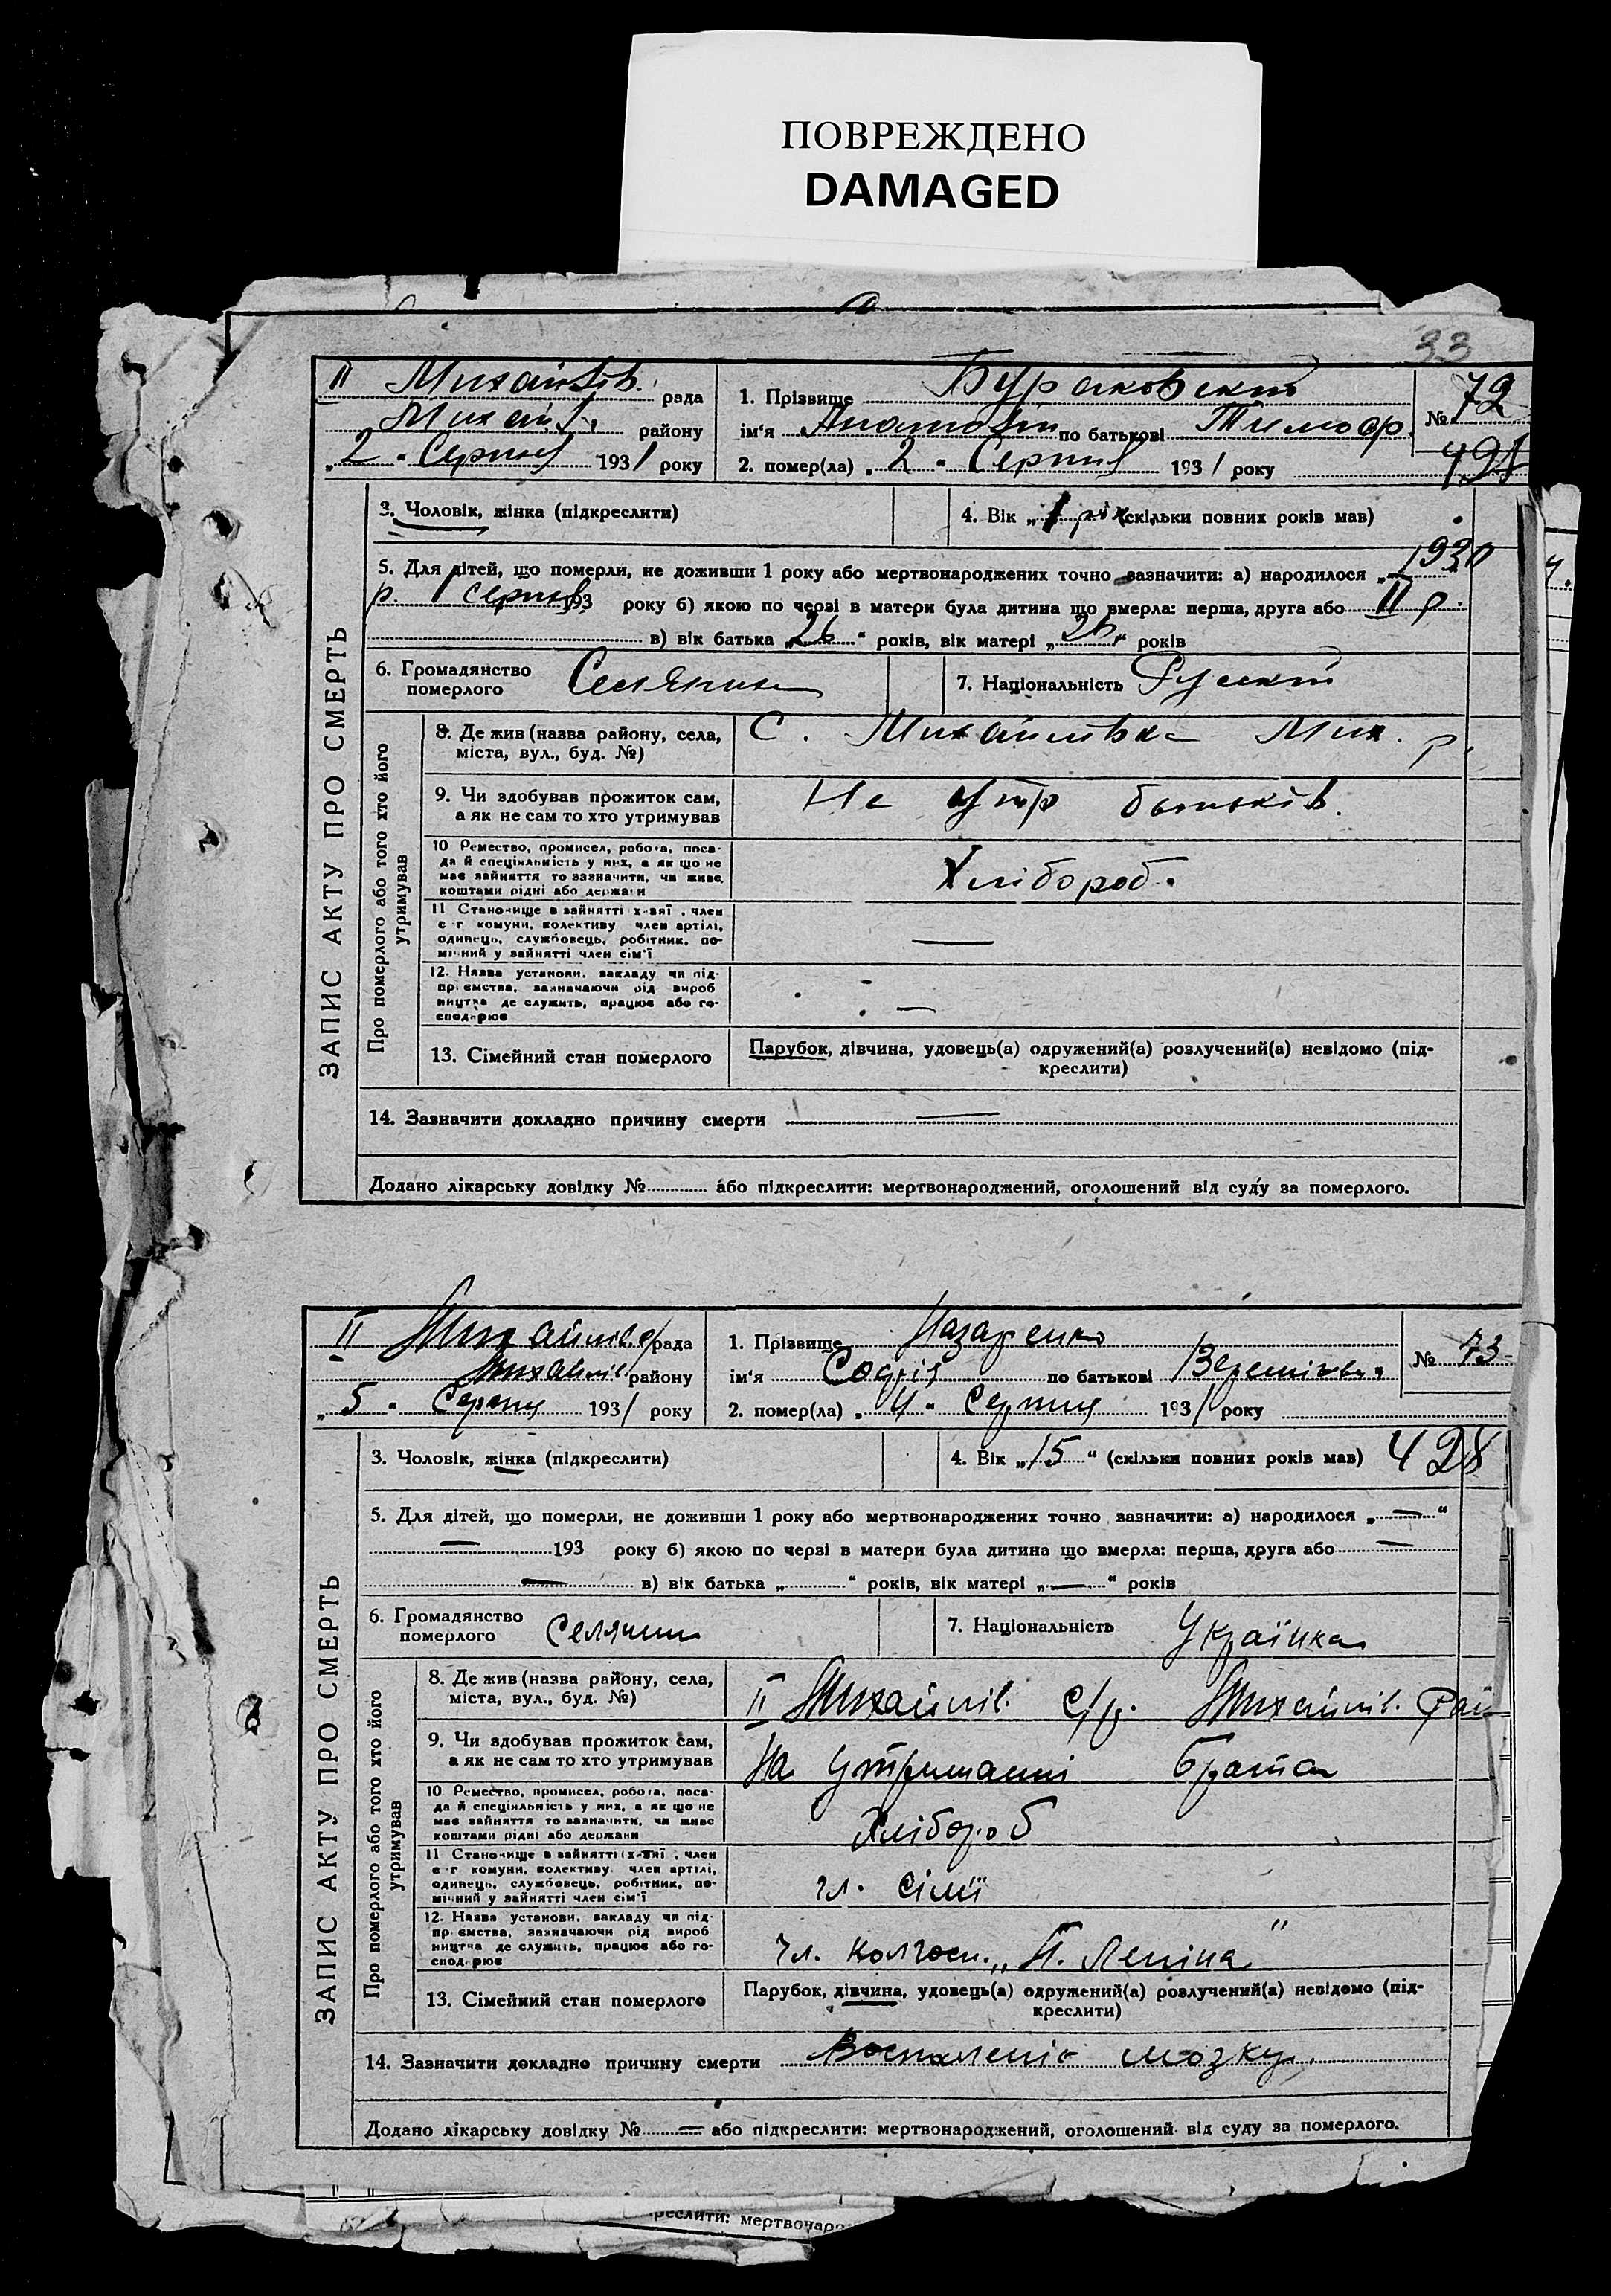 ПОВРЕЖДЕНО
DAMAGED
33
ЗАПИС АКТУ ПРО СМЕРТЬ
II Михайлів. рада
Михайл. району
„2“ Серпня 1931 року
1. Прізвище Бураковский
ім'я Анатолій по батькові Тимоф.
2. помер(ла) „2“ Серпня 1931 року
№ 72
3. Чоловік, жінка (підкреслити)
4. Вік „1 рік (скільки повних років мав)
5. Для дітей, що померли, не доживши 1 року або мертвонароджених точно зазначити: а) народилося „ 1930
р. 1 серпня 193 року б) якою по черзі в матери була дитина що вмерла: перша, друга або II р.
в) вік батька „26“ років, вік матері „26“ років
6. Громадянство померлого Селянин
7. Національність Руський
Про померлого або того хто його утримував
8. Де жив (назва району, села,
міста, вул., буд. №)
С. Михайлівка Мих. р.
9. Чи здобував прожиток сам,
а як не сам то хто утримував
На утр батьків.
10 Ремество, промисел, робота, поса-
да й спеціяльність у них, а як що не
має зайняття то зазначити, чи живе
коштами рідні або держави
Хлібороб.
11 Становище в зайнятті х-вяї, член
с г комуни, колективу член артілі,
одинець, службовець, робітник, по-
мічний у зайнятті член сім'ї
12. Назва установи, закладу чи під-
приємства, зазначаючи рід вироб
ництва де служить, працює або го-
сподарює
13. Сімейний стан померлого
Парубок, дівчина, удовець(а) одружений(а) розлучений(а) невідомо (під-
креслити)
14. Зазначити докладно причину смерти
Додано лікарську довідку № або підкреслити: мертвонароджений, оголошений від суду за померлого.
ЗАПИС АКТУ ПРО СМЕРТЬ
II Михайлів с/рада
Михайлів району
„5“ Серпня 1931 року
1. Прізвище Назаренко
ім'я Софія по батькові
2. помер(ла) „4“ Серпня 1931 року
№ 73
3. Чоловік, жінка (підкреслити)
4. Вік „15“ (скільки повних років мав) 428
5. Для дітей, що померли, не доживши 1 року або мертвонароджених точно зазначити: а) народилося „—“
— 193 року б) якою по черзі в матери була дитина що вмерла: перша, друга або —
— в) вік батька „ “ років, вік матері „—“ років
6. Громадянство померлого Селянин
7. Національність Українка
Про померлого або того хто його утримував
8. Де жив (назва району, села,
міста, вул., буд. №)
II Михайлів. с/р. Михайлів. Рай
9. Чи здобував прожиток сам,
а як не сам то хто утримував
На утриманні брата
10 Ремество, промисел, робота, поса-
да й спеціяльність у них, а як що не
має зайняття то зазначити, чи живе
коштами рідні або держави
Хлібороб
11 Становище в зайнятті х-вяї, член
с г комуни, колективу член артілі,
одинець, службовець, робітник, по-
мічний у зайнятті член сім'ї
чл. сімї
12. Назва установи, закладу чи під-
приємства, зазначаючи рід вироб
ництва де служить, працює або го-
сподарює
чл. колгосп. „ Леніна“
13. Сімейний стан померлого
Парубок, дівчина, удовець(а) одружений(а) розлучений(а) невідомо (під-
креслити)
14. Зазначити докладно причину смерти Воспаленіє мозку.
Додано лікарську довідку № — або підкреслити: мертвонароджений, оголошений від суду за померлого.
реслити: мертвонаро